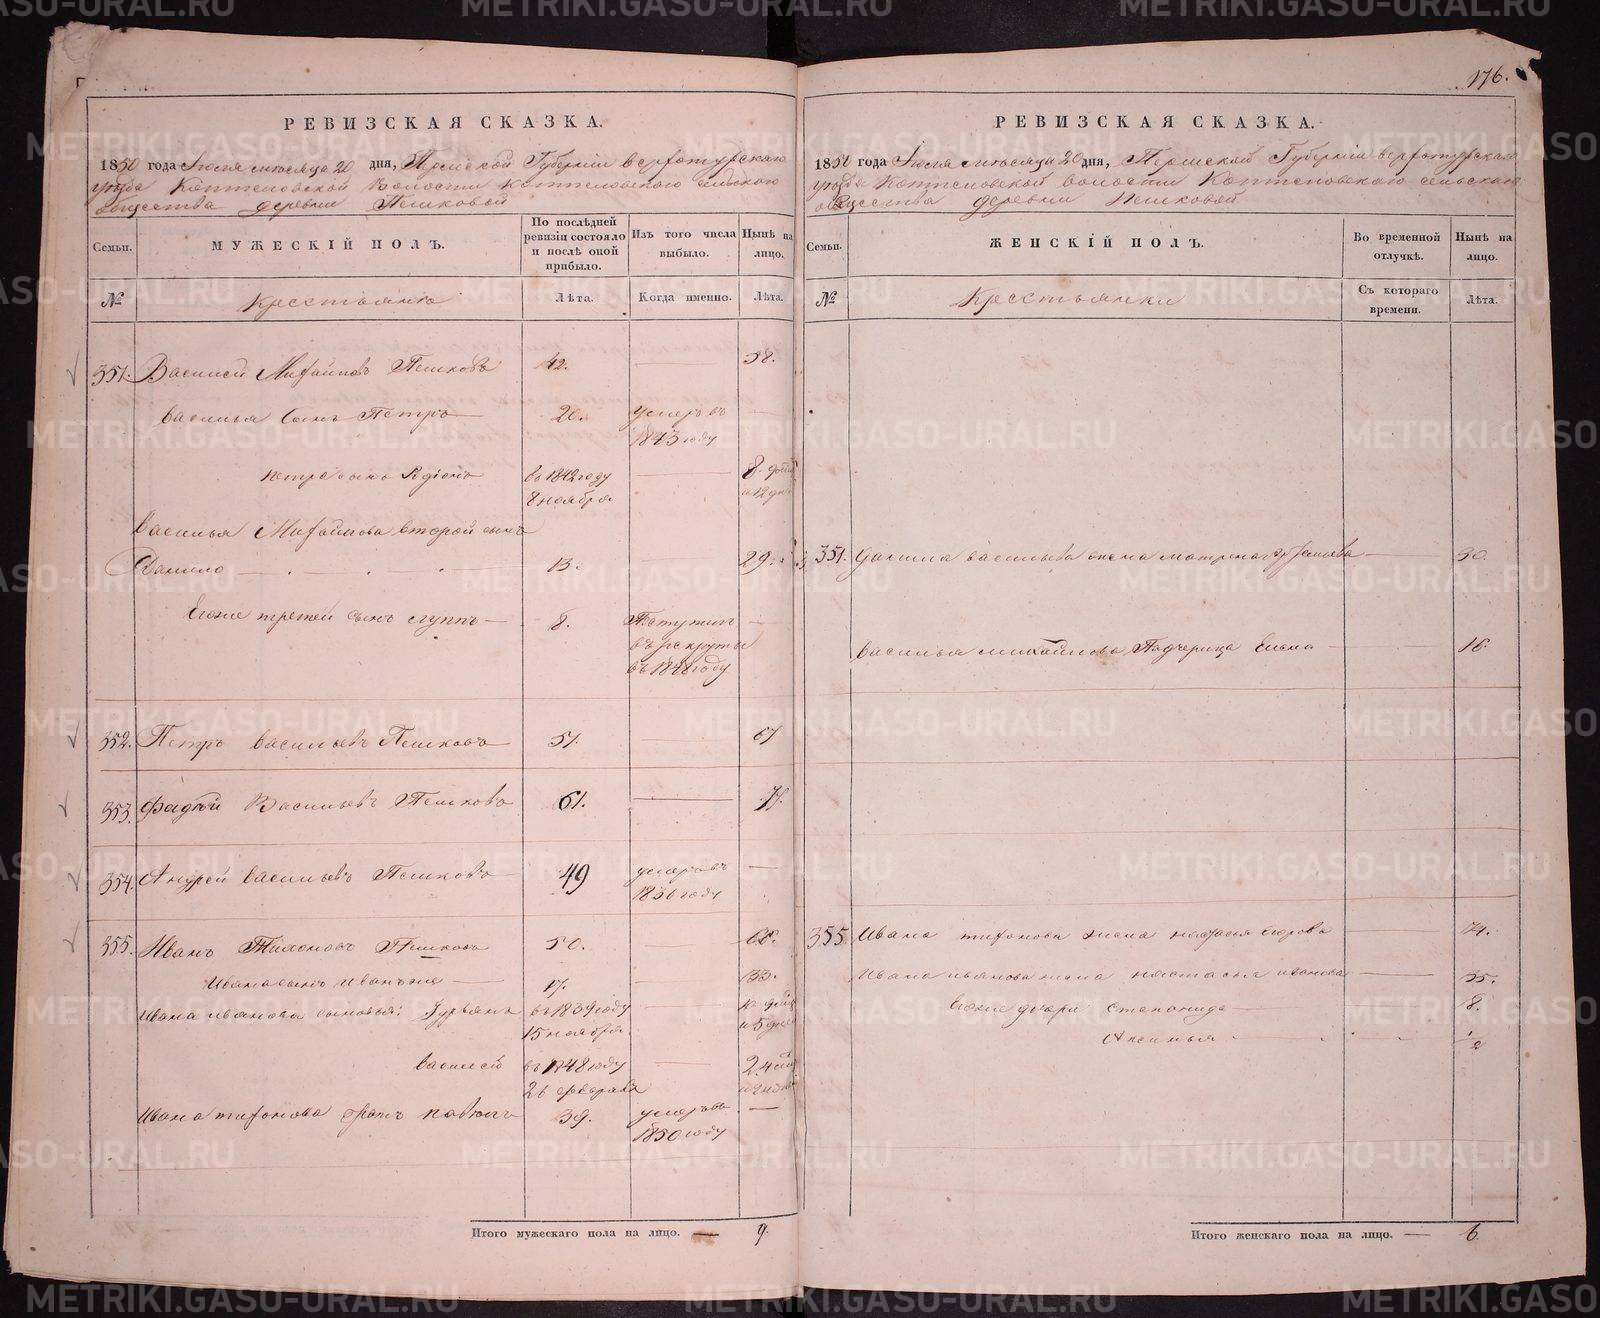 176.
РЕВИЗСКАЯ СКАЗКА.
1850 года Июля месяца 20 дня, Пермской Губернiи верхотурскаго
уезда Коптеловской Волости Коптеловскаго сельскаго
общества деревни Пешковой
Семьи.
МУЖЕСКIЙ ПОЛЪ.
По послѣдней ревизiи состояло и послѣ оной прибыло.
Изъ того числа выбыло.
Нынѣ на лицо.
№
Крестьянѣ
Лѣта.
Когда именно.
Лѣта.
351. Василей Михайловъ Пешковъ 42. 58.
Василья Сынъ Петръ 20. умеръ въ
1843 году
Петра сынъ Родiонъ въ 1842 году 8
8 ноября
Василья Михайлова второй сынъ
Данило 13. 29
Егоже третей сынъ Луппъ 8. Поступилъ
въ рекруты
въ 1848 году
352. Петръ Васильевъ Пешковъ 51. 67
353. Фадѣй Васильевъ Пешковъ 61. 77.
354. Андрей Васильевъ Пешковъ 49 умеръ въ
1836 году
355. Иванъ Тихоновъ Пешковъ 50. 66.
Ивана сынъ Иванъ же 17. 33.
Ивана Иванова сыновья: Гурьянъ въ 1839 году 10
15 ноября и 5
Василей въ 1848 году 2. 4
26 февраля
Ивана Тихонова братъ Павелъ 39. умеръ въ
1850 году
Итого мужескаго пола на лицо. — 9.
РЕВИЗСКАЯ СКАЗКА.
1850 года Июля месяца 20 дня, Пермской Губернiи верхотурскаго
уезда Коптеловской волости Коптеловскаго сельскаго
общества деревни Пешковой
Семьи.
ЖЕНСКIЙ ПОЛЪ.
Во временной отлучкѣ.
Нынѣ на лицо.
№
Крестьянки
Съ котораго времени.
Лѣта.
351. Данила Васильева жена Матрена 30.
Василья Михайлова Падчерица Елена 16.
355. Ивана Тихонова жена Настасья Егорова 74.
Ивана Иванова жена Настасья Иванова 35.
Егоже дочери Степанида 8.
Аксинья 1/2
Итого женскаго пола на лицо. — 6.
METRIKI.GASO-URAL.RU